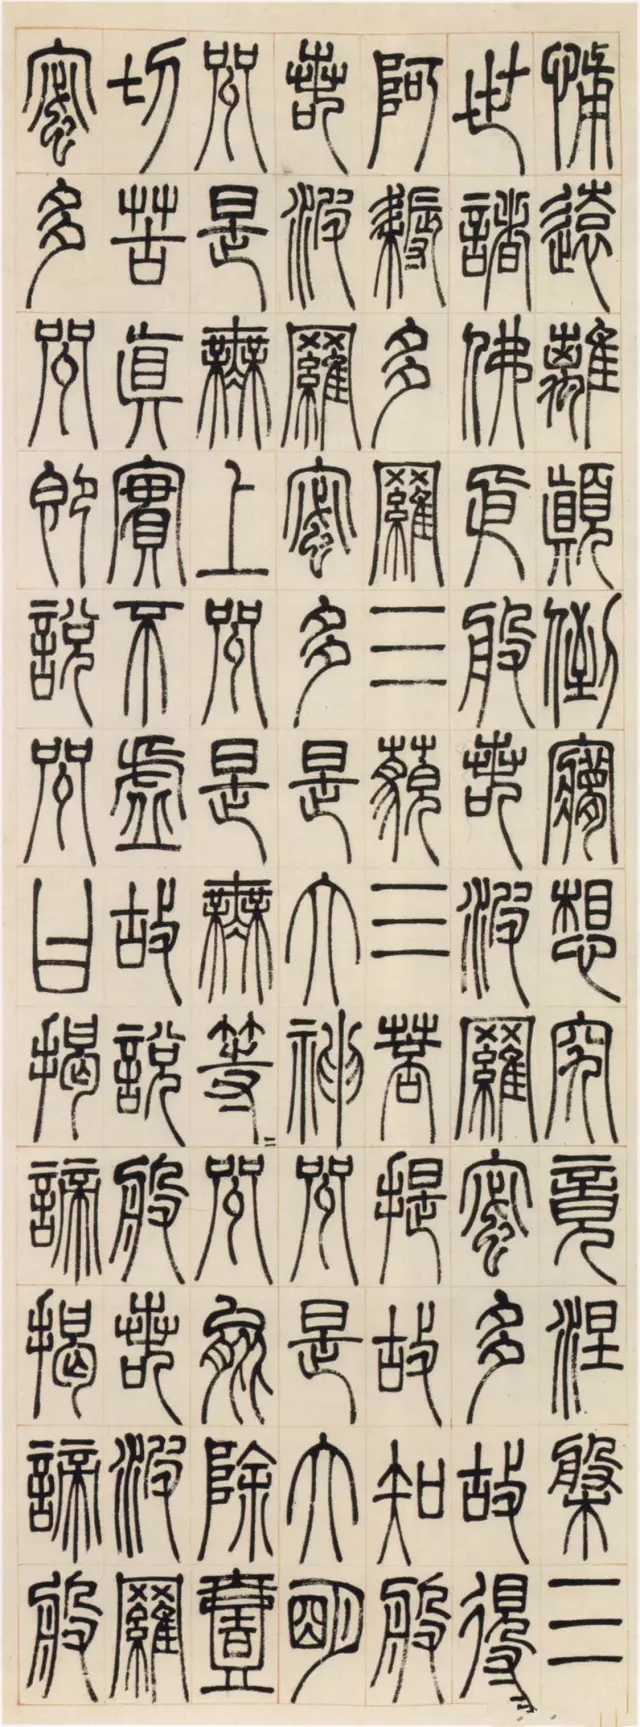 怖遠離顛倒夢想究竟涅槃三
世諸佛依般若波羅蜜多故得
阿耨多羅三藐三菩提故知般
若波羅蜜多是大神咒是大明
咒是無上咒是無等〻咒能除壹
切苦真實不虛故說般若波羅
蜜多咒即說咒曰揭諦揭諦般